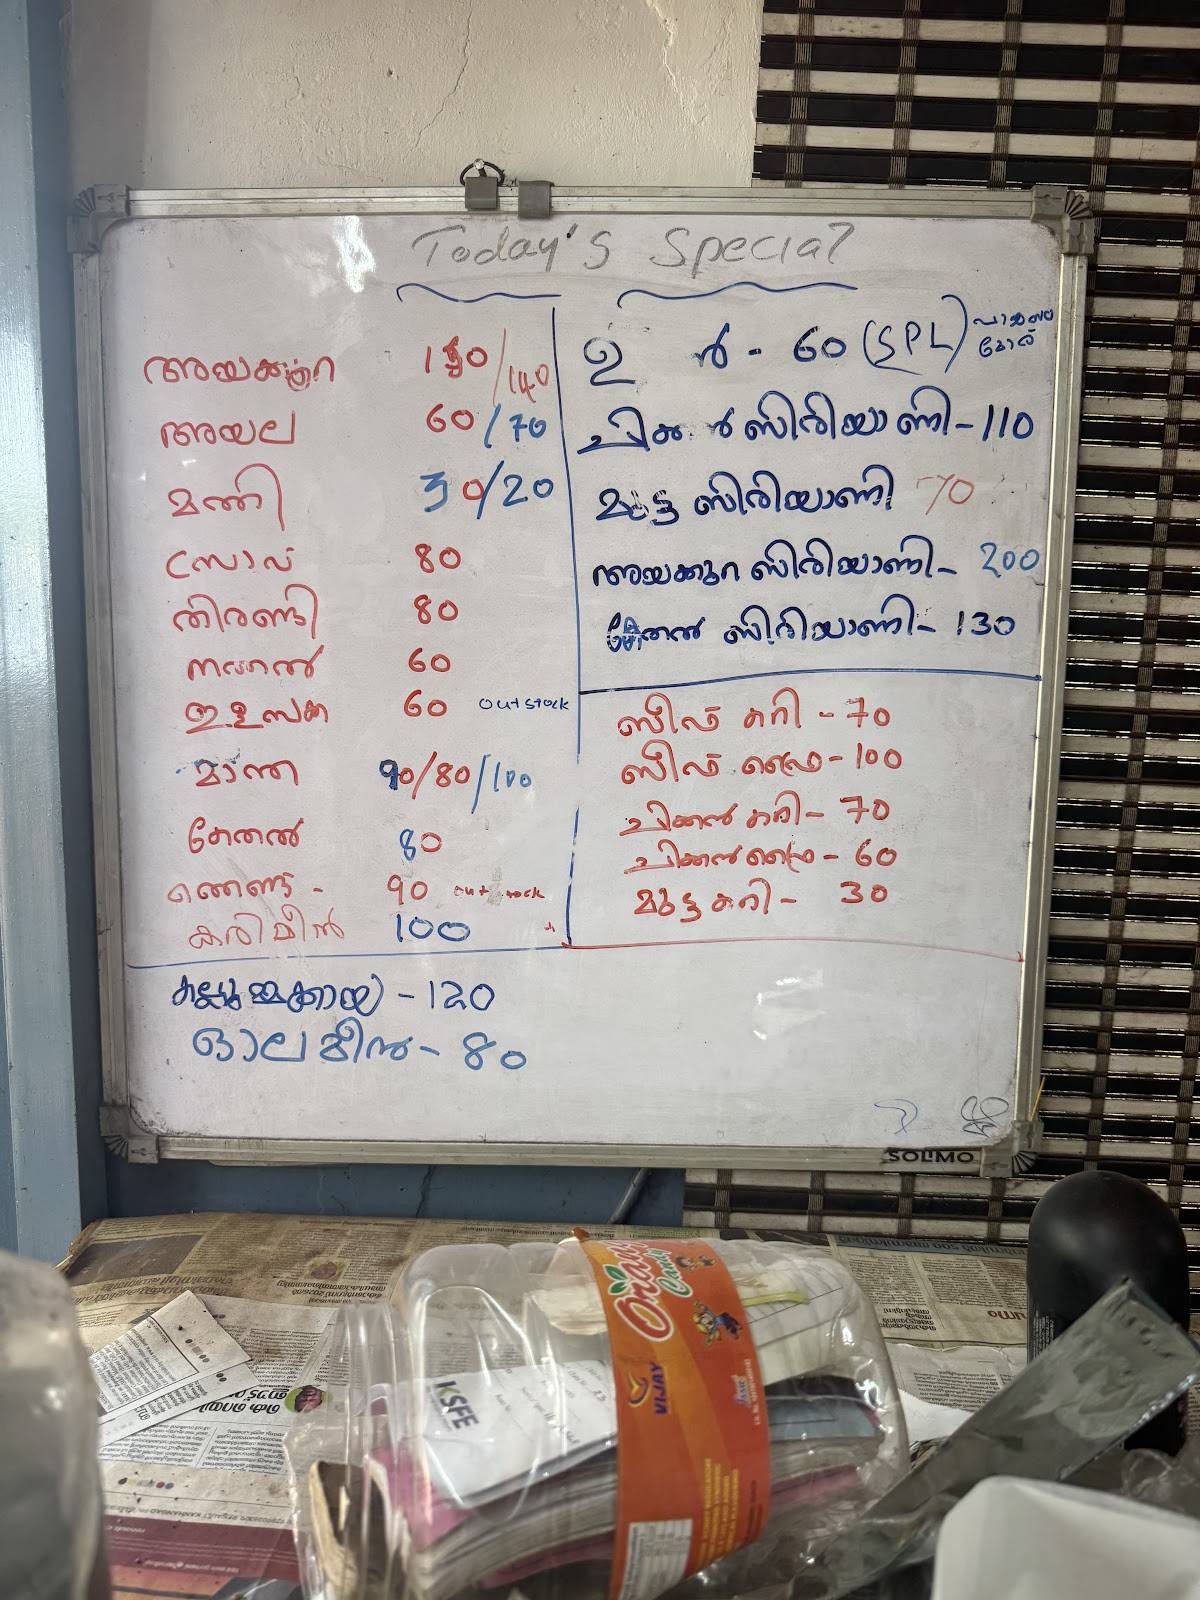 Today's Special
അയക്കൂറ 150/140
അയല 60/70
മത്തി 30/20
സ്രാവ് 80
തിരണ്ടി 80
നങ്ങൽ 60
60 out stock
മാന്ത 90/80/100
കേതൽ 80
ഞെണ്ട് - 90 out stock
കരിമീൻ 100
കല്ലുമ്മക്കായ - 120
ഓലമീൻ - 80
60 (SPL)
ചിക്കൻ ബിരിയാണി - 110
മുട്ട ബിരിയാണി 70
അയക്കൂറ ബിരിയാണി - 200
കേതൽ ബിരിയാണി - 130
ബീഫ് കറി - 70
ബീഫ് ഫ്രൈ - 100
ചിക്കൻ കറി - 70
ചിക്കൻ ഫ്രൈ - 60
മുട്ട കറി - 30
SOLIMO
Orange
Candy
VIJAY
KSFE